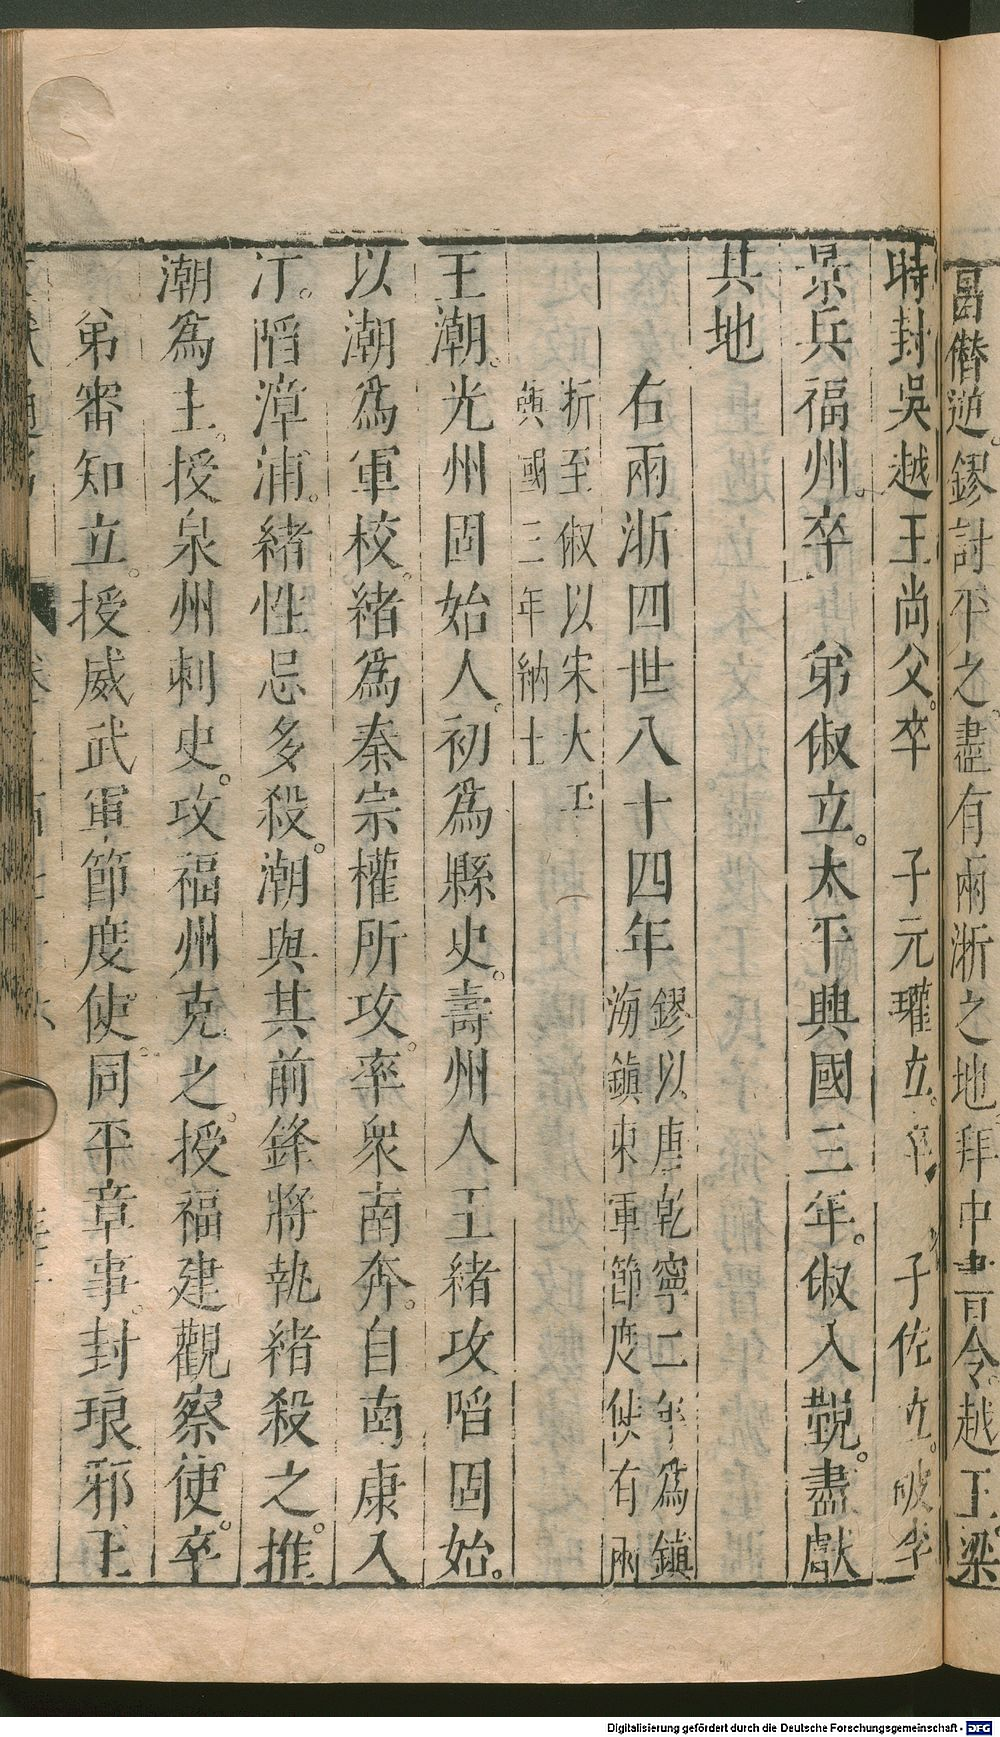 昌僭逆。鏐討平之。盡有兩浙之地。拜中書令。越王。梁
時封吳越王尚父。卒　子元瓘立。卒　子佐立。破李
景兵福州。卒　弟俶立。太平興國三年。俶入覲。盡獻
其地
右兩浙四世八十四年
鏐以唐乾寧二年為鎮
海鎮東軍節度使有兩
浙至俶以宋太平
興國三年納土
王潮。光州固始人。初為縣史。壽州人王緒攻陷固始。
以潮為軍校。緒為秦宗權所攻。率衆南奔。自南康入
汀。陷漳浦。緒性忌多殺。潮與其前鋒將執緒殺之。推
潮為主。授泉州刺史。攻福州克之。授福建觀察使。卒。
弟審知立。授威武軍節度使。同平章事。封琅邪王
Digitalisierung gefördert durch die Deutsche Forschungsgemeinschaft - DFG